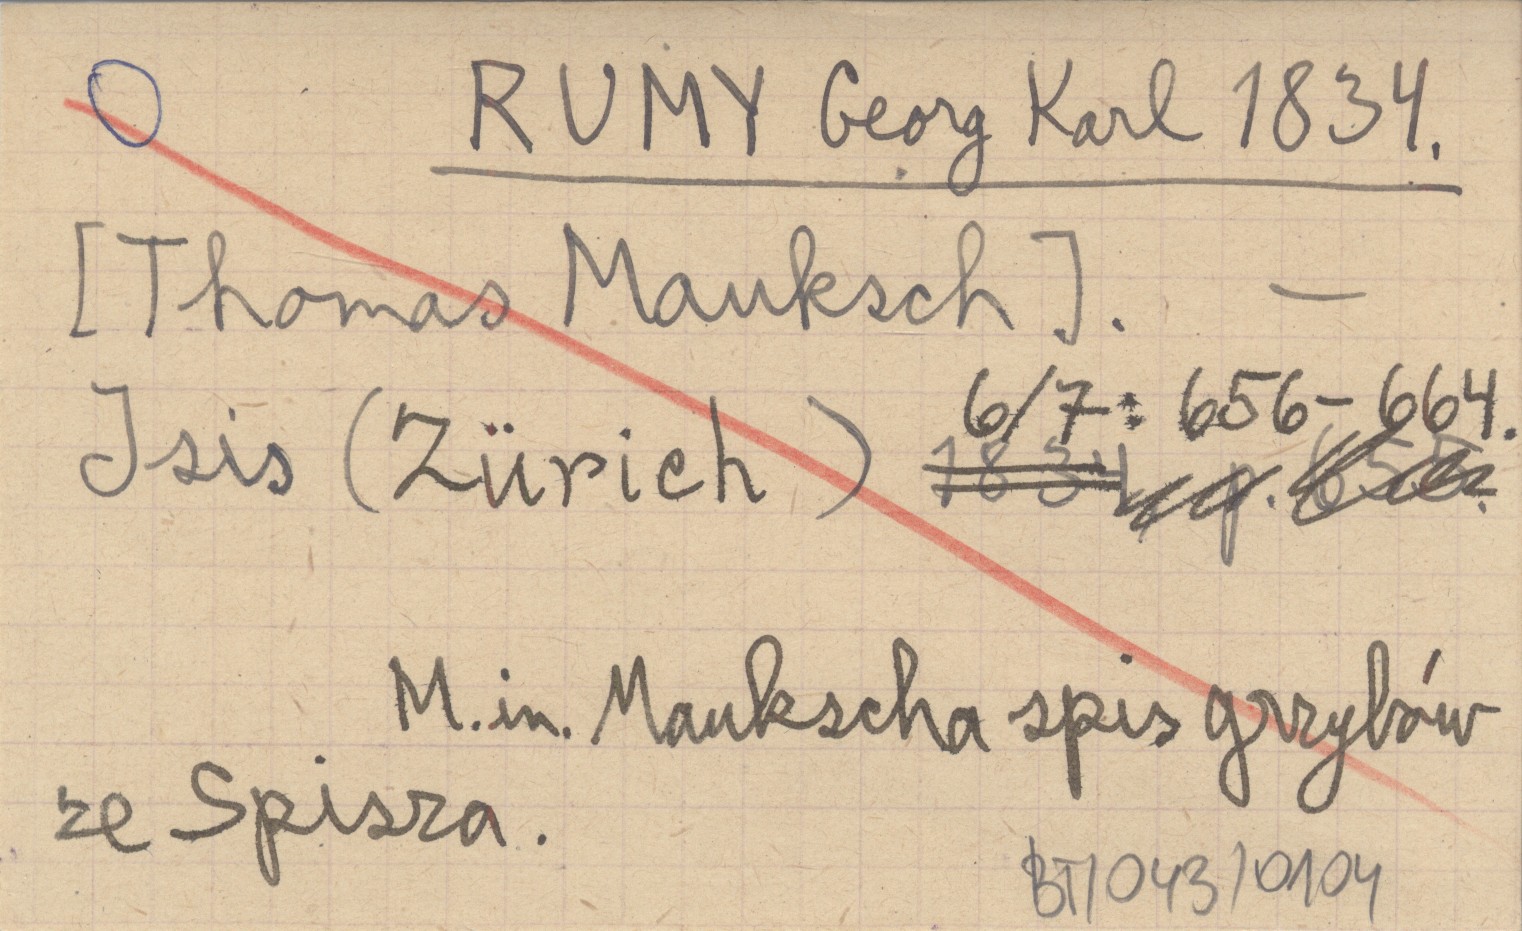 RUMY Georg Karl 1834.
[Thomas Mauksch]. —
Isis (Zürich) 6/7: 656-664.
1834 p.
M.in. Maukscha spis grzybów
ze Spisza.
BT/043/0104